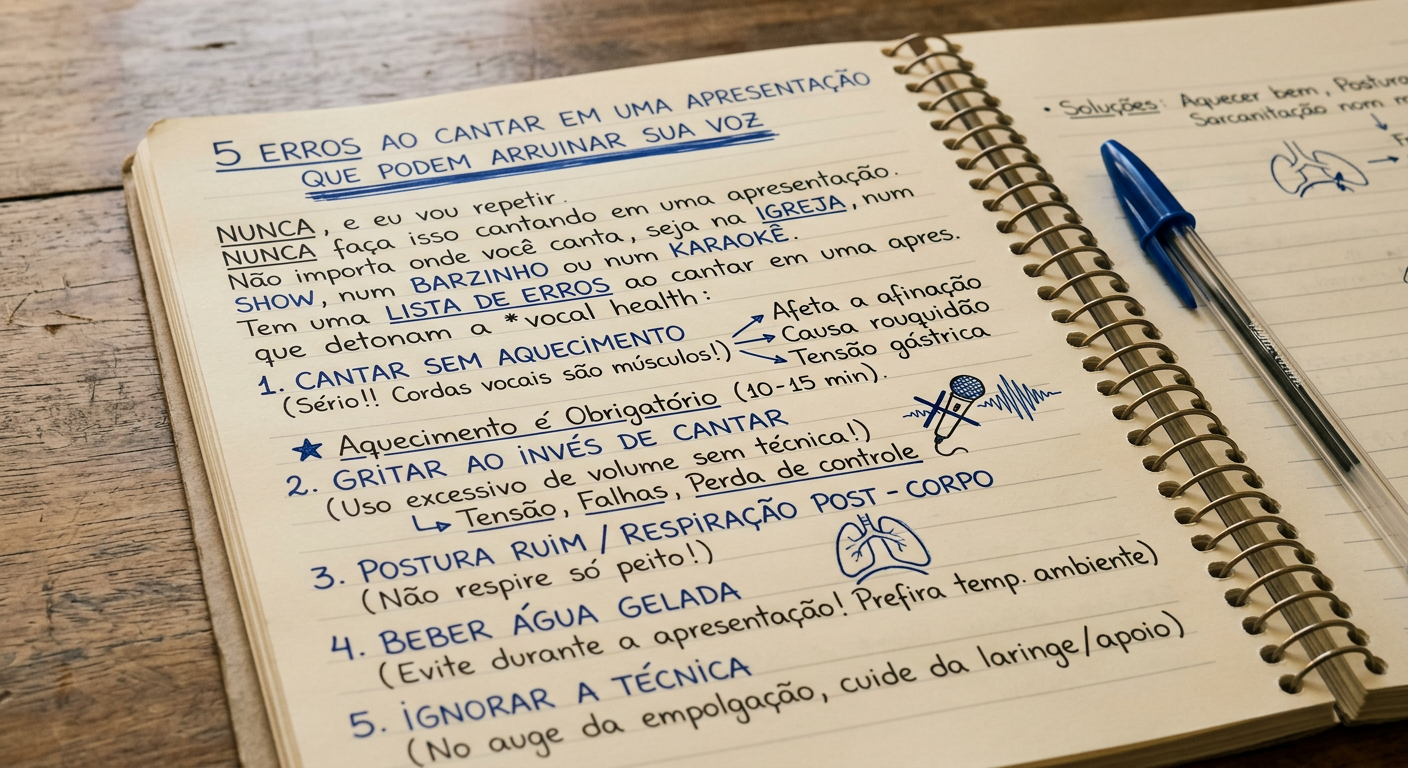 5 ERROS AO CANTAR EM UMA APRESENTAÇÃO
QUE PODEM ARRUINAR SUA VOZ
NUNCA, e eu vou repetir.
NUNCA faça isso cantando em uma apresentação.
Não importa onde você canta, seja na IGREJA, num
SHOW, num BARZINHO ou num KARAOKÊ.
Tem uma LISTA DE ERROS ao cantar em uma apres.
que detonam a *vocal health:
1. CANTAR SEM AQUECIMENTO
(Sério!! Cordas vocais são músculos!)
Afeta a afinação
Causa rouquidão
Tensão gástrica
★ Aquecimento é Obrigatório (10-15 min).
2. GRITAR AO INVÉS DE CANTAR
(Uso excessivo de volume sem técnica!)
↳ Tensão, Falhas, Perda de controle
3. POSTURA RUIM / RESPIRAÇÃO POST-CORPO
(Não respire só peito!)
4. BEBER ÁGUA GELADA
(Evite durante a apresentação! Prefira temp. ambiente)
5. IGNORAR A TÉCNICA
(No auge da empolgação, cuide da laringe/apoio)
• Soluções: Aquecer bem, Postura
Sarcanitação nom